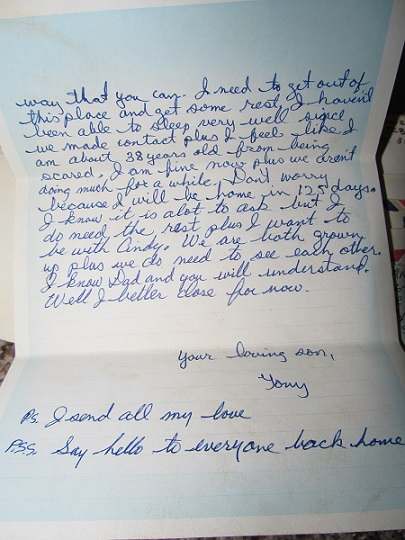 way that you can. I need to get out of
this place and get some rest. I haven't
been able to sleep very well since
we made contact plus I feel like I
am about 38 years old from being
scared. I am fine now plus we aren't
doing much for a while. Don't worry
because I will be home in 125 days.
I know it is alot to ask but I
do need the rest plus I want to
be with Cindy. We are both grown
up plus we do need to see each other.
I know Dad and you will understand.
Well I better close for now.
Your loving son,
Tony
PS. I send all my love
PSS. Say hello to everyone back home